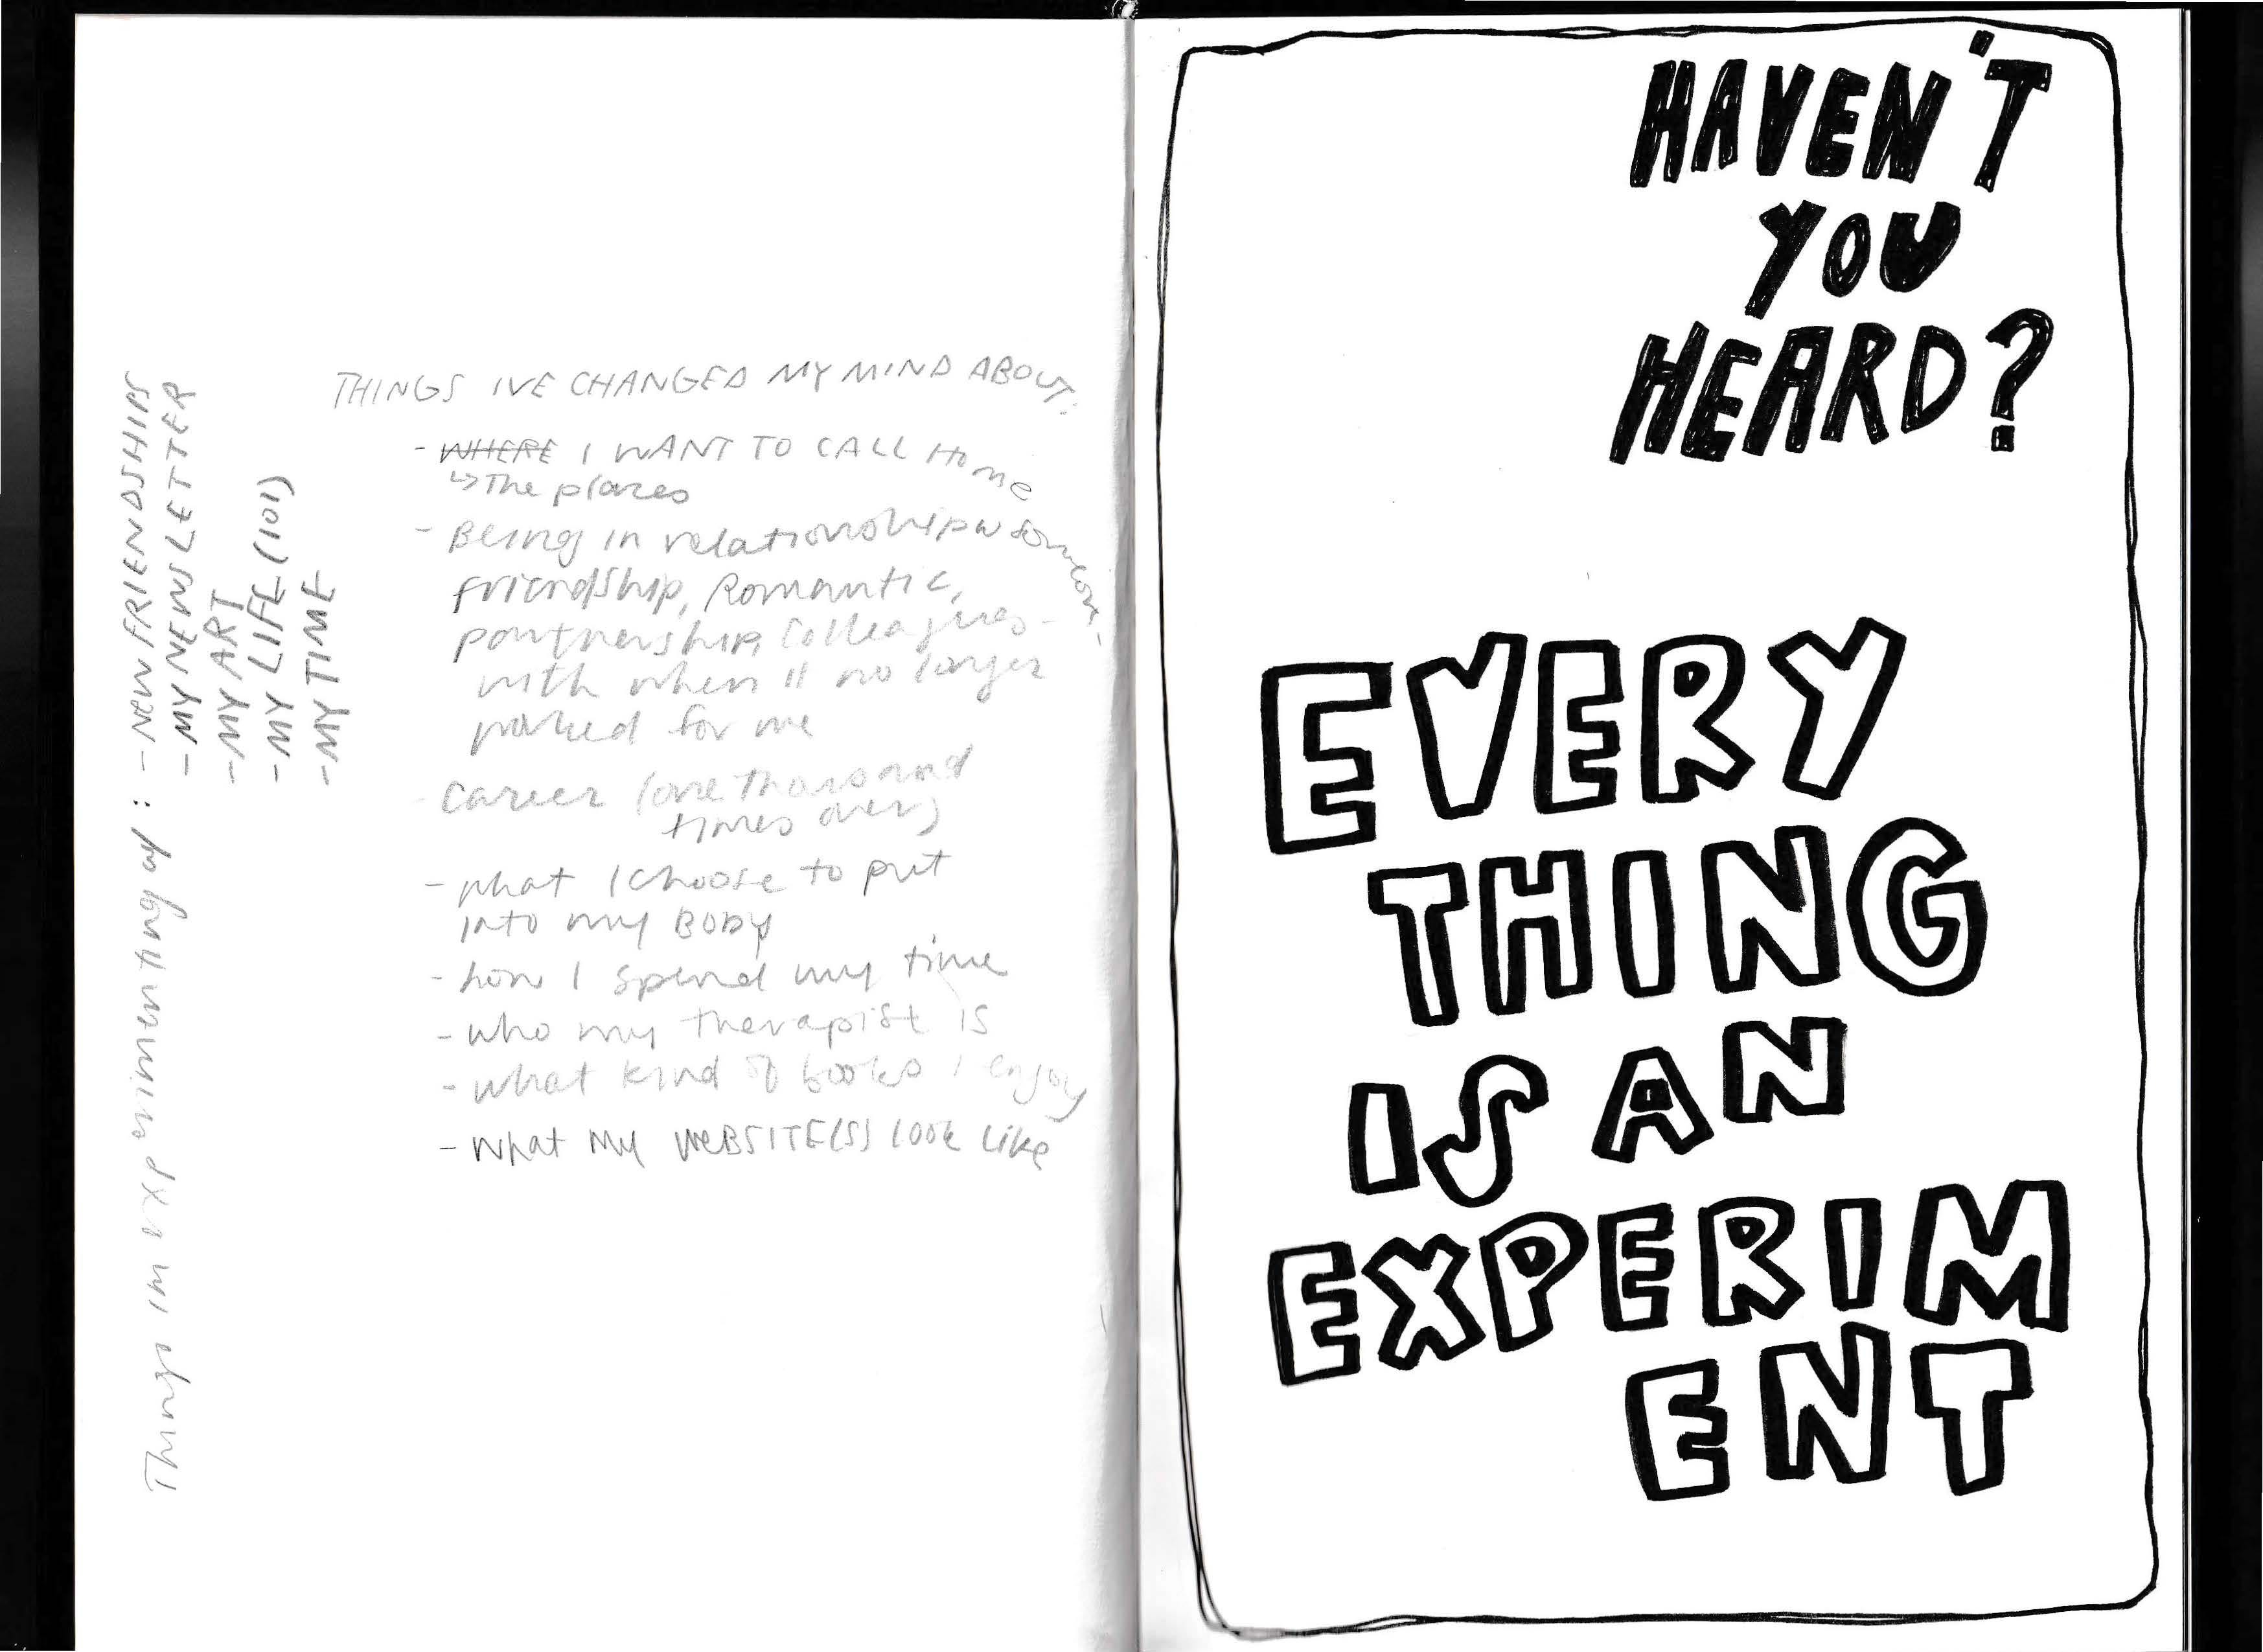 THINGS IVE CHANGED MY MIND ABOUT:
- WHERE I WANT TO CALL HOME
↳ The places
- Being in relationship w someone -
friendship, Romantic,
partnership, Colleagues -
with when it no longer
worked for me
- career (one thousand
times over)
- what I choose to put
into my BODY
- how I spend my time
- who my therapist is
- what kind of books I enjoy
- what my WEBSITE(S) look like
Things im experimenting w/ : - NEW FRIENDSHIPS
- MY NEWSLETTER
- MY ART
- MY LIFE (101)
- MY TIME
HAVEN'T
YOU
HEARD?
EVERY
THING
IS AN
EXPERIM
ENT